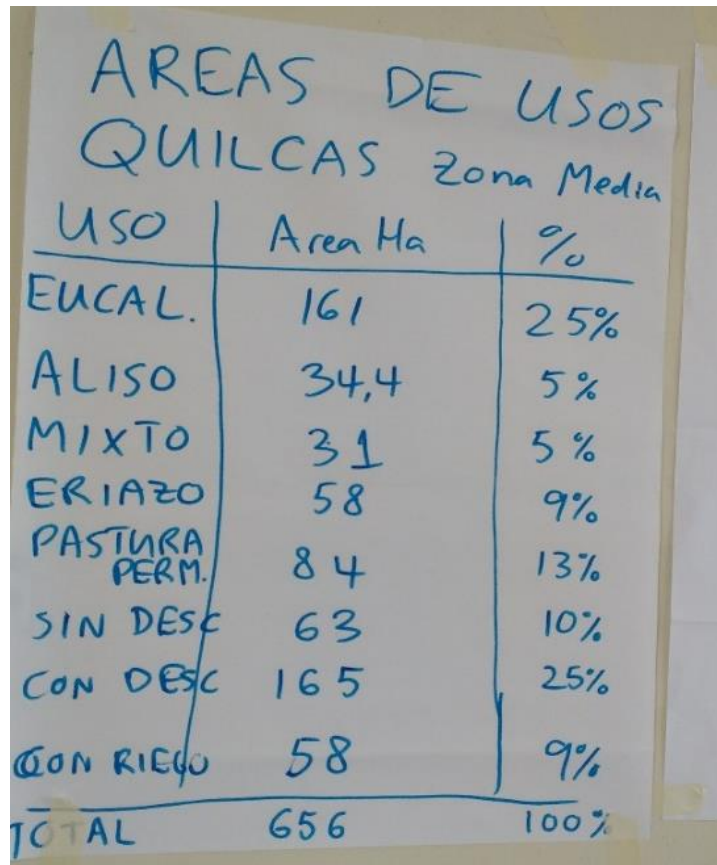 AREAS DE USOS
QUILCAS Zona Media
USO Area Ha %
EUCAL. 161 25%
ALISO 34,4 5%
MIXTO 31 5%
ERIAZO 58 9%
PASTURA
PERM. 84 13%
SIN DESC 63 10%
CON DESC 165 25%
CON RIEGO 58 9%
TOTAL 656 100%